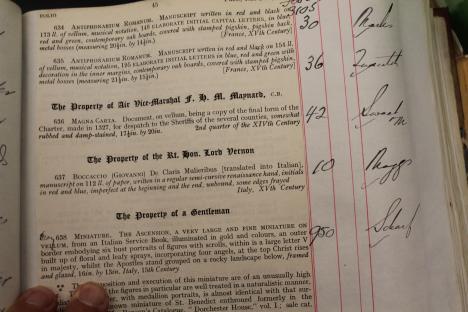 FOLIO
45
3105
634 ANTIPHONARIUM ROMANUM. MANUSCRIPT written in red and black on
113 ll. of vellum, musical notation, 116 ELABORATE INITIAL CAPITAL LETTERS, in blue,
red and green, contemporary oak boards, covered with stamped pigskin, pigskin back,
metal bosses (measuring 20½in. by 14in.) [France, XVth Century]
30
635 ANTIPHONARIUM ROMANUM. MANUSCRIPT written in red and black on 154 ll.
of vellum, musical notation, 116 ELABORATE INITIAL LETTERS in blue, red and green with
decoration in the inner margins, contemporary oak boards, covered with stamped pigskin,
metal bosses (measuring 21½in. by 15½in.) [France, XVth Century]
36
The Property of Air Vice-Marshal F. H. M. Maynard, C.B.
636 MAGNA CARTA. Document, on vellum, being a copy of the final form of the
Charter, made in 1327, for despatch to the Sheriffs of the several counties, somewhat
rubbed and damp-stained, 17½in. by 20in. 2nd quarter of the XIVth Century
42
The Property of the Rt. Hon. Lord Vernon
637 BOCCACCIO (GIOVANNI) De Claris Mulieribus [translated into Italian],
manuscript on 112 ll. of paper, written in a regular semi-cursive renaissance hand, initials
in red and blue, imperfect at the beginning and end, unbound, some edges frayed
Italy, XVth Century
10 Maggs
The Property of a Gentleman
658 MINIATURE. THE ASCENSION, A VERY LARGE AND FINE MINIATURE ON
VELLUM, from an Italian Service Book, illuminated in gold and colours, an outer
border embodying six bust portraits of figures with scrolls, within is a large letter V
built up of floral and leafy sprays, incorporating four angels, at the top Christ rises
in majesty, whilst the Apostles stand grouped on a rocky landscape below, framed
and glazed, 16in. by 13in. Italy, 15th Century
950 Scharf
position and execution of this miniature are of an unusually high
the figures in particular are well treated in a naturalistic manner.
with medallion portraits, is almost identical with that sur-
known miniature of St. Benedict enthroned formerly in the
Catalogue, "Dorchester House," vol. I.; sale cat.